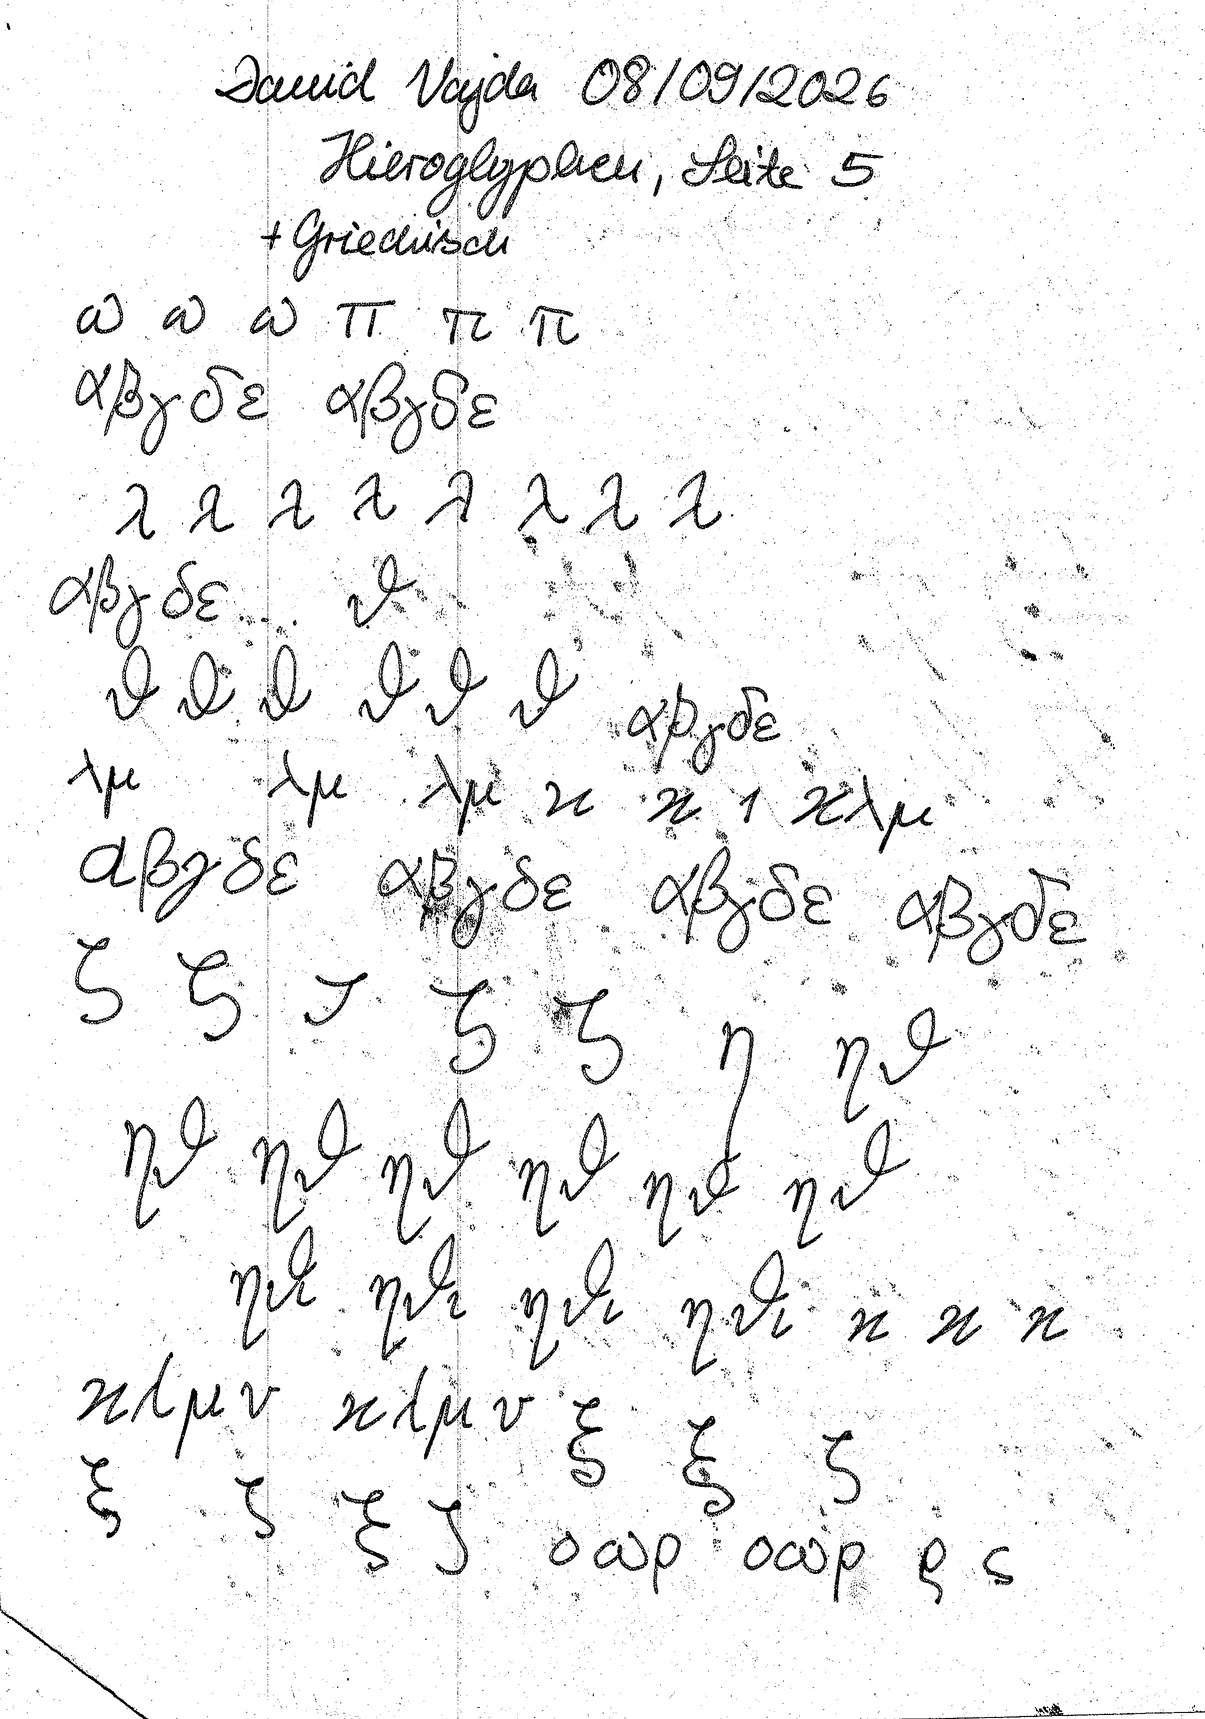 David Vajda 08/09/2026
Hieroglyphen, Seite 5
+ Griechisch
ω ω ω π π π
αβγδε αβγδε
λ λ λ λ λ λ λ λ
αβγδε... ϑ
ϑ ϑ ϑ ϑ ϑ ϑ αβγδε
λμ λμ λμ ϰ ϰ 1 ϰλμ
αβγδε αβγδε αβγδε αβγδε
ζ ζ ζ ζ η ηϑ
ηϑ ηϑ ηϑ ηϑ ηϑ ηϑ
ηϑι ηϑι ηϑι ηϑι ϰ ϰ ϰ
ϰλμν ϰλμν ξ ξ ζ
ξ ζ ξ ζ οωρ οωρ ρ ς